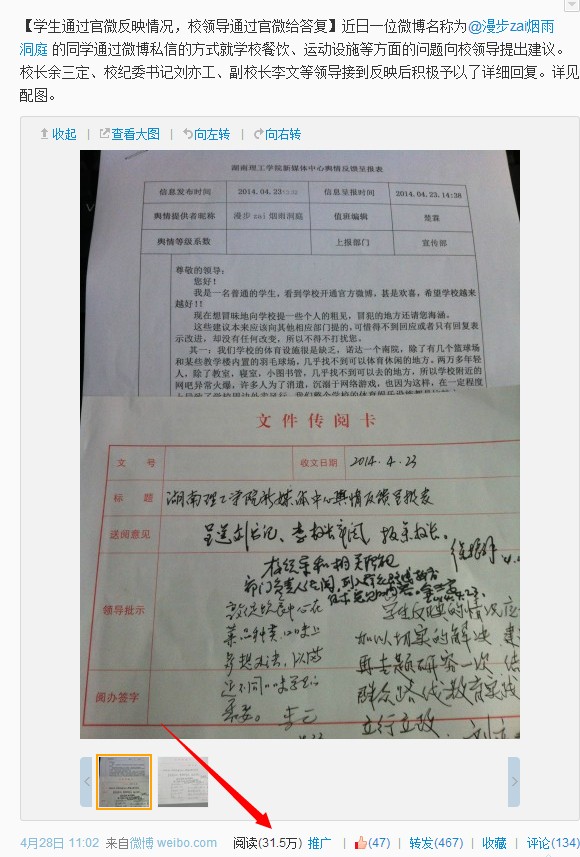 【学生通过官微反映情况，校领导通过官微给答复】近日一位微博名称为@漫步zai烟雨
洞庭 的同学通过微博私信的方式就学校餐饮、运动设施等方面的问题向校领导提出建议。
校长余三定、校纪委书记刘亦工、副校长李文等领导接到反映后积极予以了详细回复。详见
配图。
收起 | 查看大图 | 向左转 | 向右转
湖南理工学院新媒体中心舆情反馈呈报表
信息发布时间 2014.04.23 信息呈报时间 2014.04.23.14:38
舆情提供者昵称 漫步 zai 烟雨洞庭 值班编辑 楚霖
舆情等级系数 上报部门 宣传部
尊敬的领导：
您好！
我是一名普通的学生，看到学校开通官方微博，甚是欢喜，希望学校越来
越好！！
现在想冒昧地向学校提一些个人的粗见，冒犯的地方还请您海涵。
这些建议本来应该向其他相应部门提的，可惜得不到回应或者只有回复表
示改进，却没有任何改变，所以不得不打扰您。
其一：我们学校的体育设施很是缺乏，诺达一个南院，除了有几个篮球场
和某些教学楼内置的羽毛球场，几乎找不到可以体育休闲的地方。两万多年轻
人，除了教室，寝室，小图书管，几乎找不到可以去的地方，所以学校附近的
网吧异常火爆，许多人为了消遣，沉溺于网络游戏，也因为这样，在一定程度
文件传阅卡
文 号 收文日期 2014.4.23
标 题 湖南理工学院新媒体中心舆情反馈呈报表
送阅意见
领导批示
学生反映的情况应
加以切实的解决
菜品种类、口味上
多想办法，以满
再专题研究一次
群众路线教育实践
立行立改
阅办签字
4月28日 11:02 来自微博 weibo.com 阅读(31.5万) 推广 | (47) | 转发(467) | 收藏 | 评论(134)